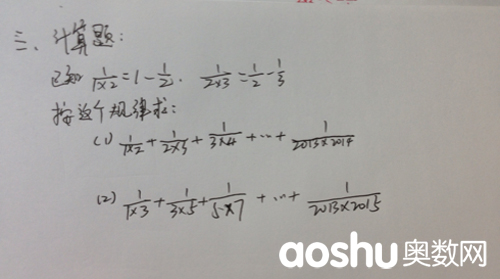 三、计算题：
已知 1/1×2 = 1 - 1/2 . 1/2×3 = 1/2 - 1/3
按这个规律求：
(1) 1/1×2 + 1/2×3 + 1/3×4 + … + 1/2013×2014
(2) 1/1×3 + 1/3×5 + 1/5×7 + … + 1/2013×2015
aoshu奥数网